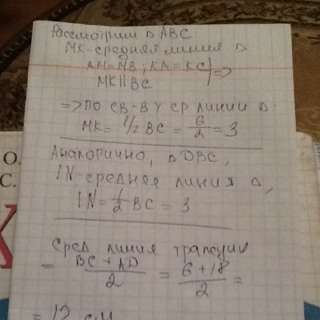 Рассмотрим △ ABC:
MK-средняя линия △
AM=MB; KA=KC | =>
MK||BC
=> по св-ву ср линии △:
MK = 1/2 BC = 6/2 = 3
Аналогично, △ DBC,
IN-средняя линия △,
IN = 1/2 BC = 3
Сред линия трапеции
= BC + AD / 2 = 6+18 / 2 =
= 12 см
О.
С.